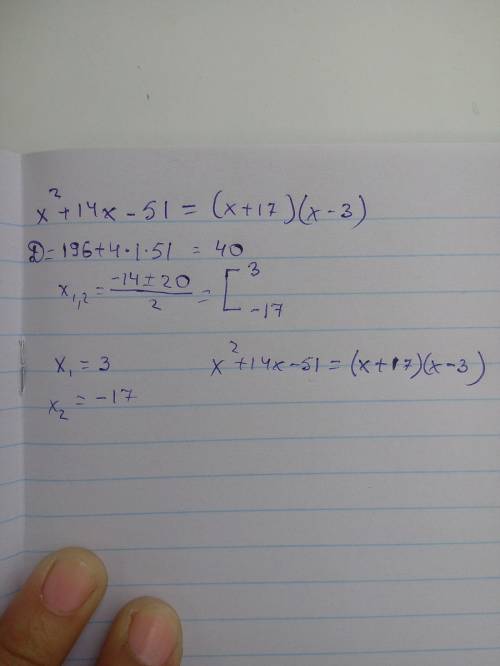 x² + 14x - 51 = (x+17)(x-3)
D = 196+4·1·51 = 40
x₁,₂ = (-14 ± 20)/2 = [ 3
-17
x₁ = 3
x₂ = -17
x² + 14x - 51 = (x+17)(x-3)